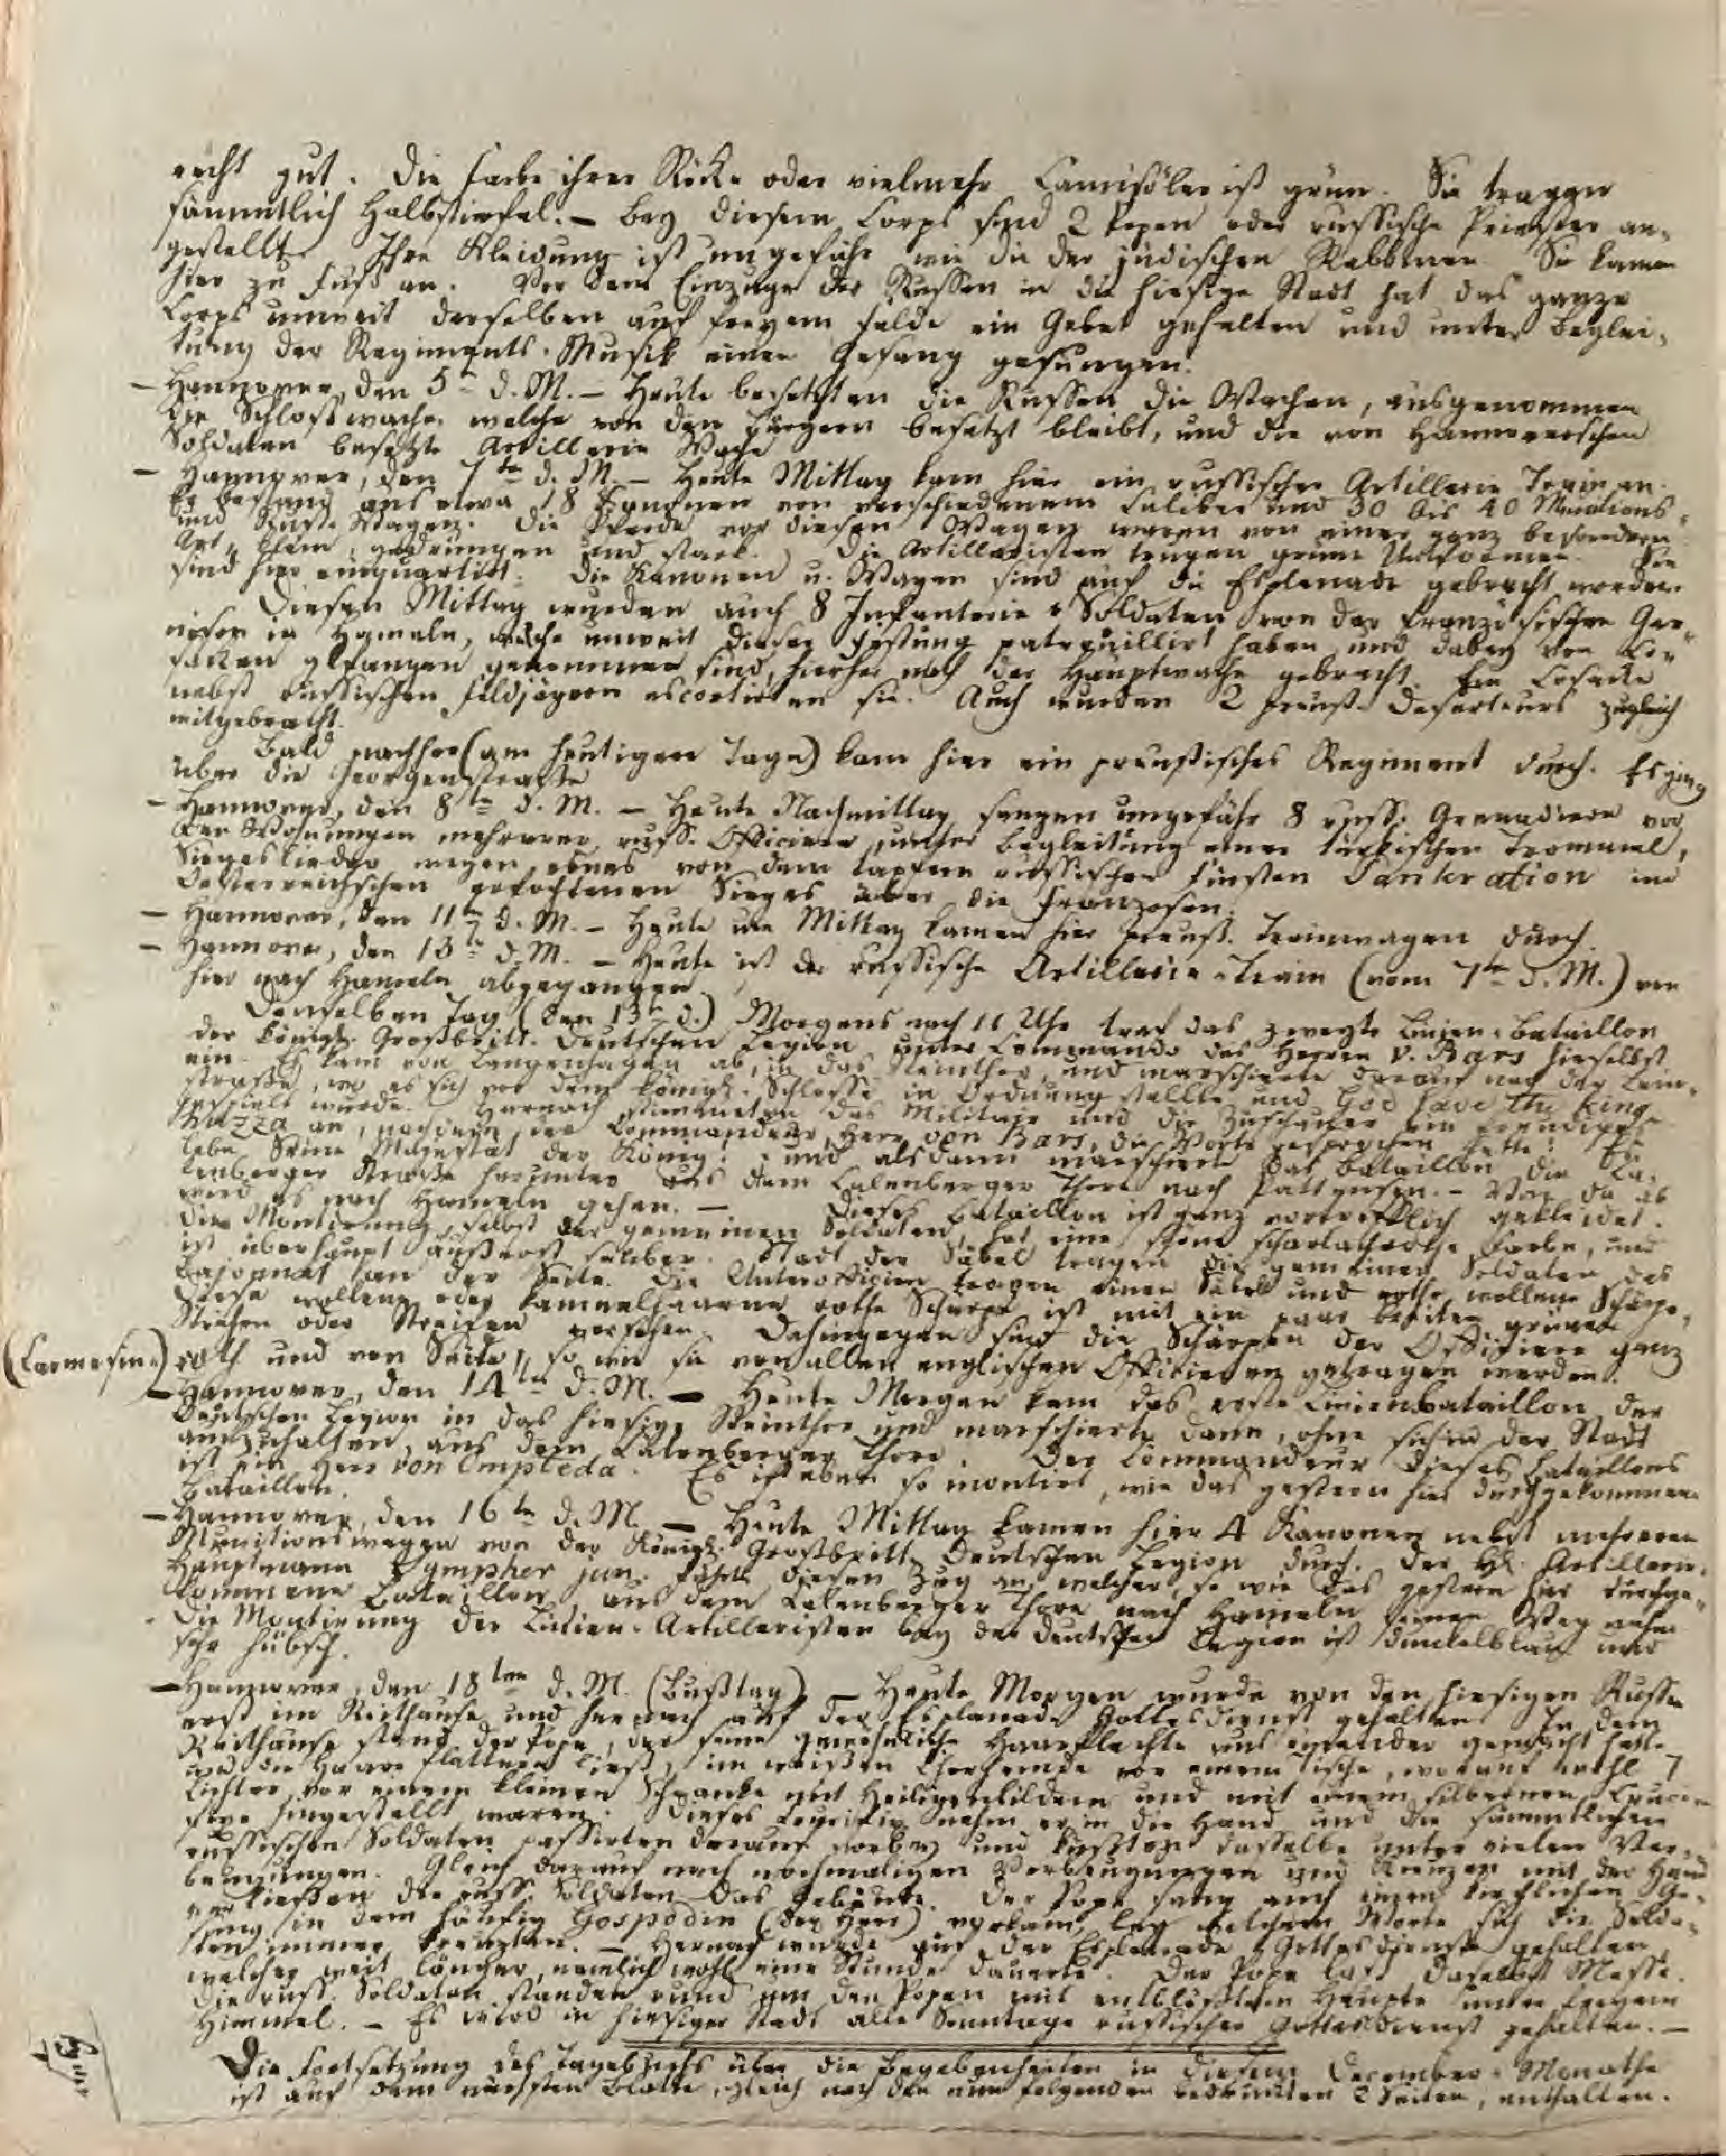 recht gut. Die Farbe ihrer Röcke oder vielmehr Camisöler ist grün. Sie tragen
sämmtlich Halbstiefel. – Bey diesem Corps sind 2 Popen oder russische Priester an-
gestellt. Ihre Kleidung ist ungefähr wie die der jüdischen Rabbiner. Sie kamen
hier zu Fuß an. Vor dem Einzuge der Russen in die hiesige Stadt hat das ganze
Corps unweit derselben auf freyem Felde ein Gebet gehalten und unter Beglei-
tung der Regiments-Musik einen Gesang gesungen.
– Hannover, den 5ten d. M. – Heute besetzten die Russen die Wachen, ausgenommen
die Schloßwache, welche von den Bürgern besetzt bleibt, und die von Hannoverschen
Soldaten besetzte Artillerie Wache
– Hannover, den 7ten d. M. – Heute Mittag kam hier ein russischer Artillerie Train an.
Er bestand aus etwa 18 Kanonen von verschiedenem Caliber und 30 bis 40 Munitions-
und Wagen. Die Pferde vor diesen Wagen waren von einer ganz besondern
Art, klein, gedrungen und stark. Die Artilleristen trugen grüne Uniformen. Sie
sind hier einquartirt. Die Kanonen u. Wagen sind auf die Esplanade gebracht worden.
Diesen Mittag wurden auch 8 Infanterie-Soldaten von der französischen Gar-
nison in Hameln, welche unweit dieser Festung patrouillirt haben und dabey von Co-
sacken gefangen genommen sind, hierher nach der Hauptwache gebracht. Ein Cosacke
nebst russischen Feldjägern escortirten sie. Auch wurden 2 preuß. Deserteurs zugleich
mitgebracht.
Bald nachher (am heutigen Tage) kam hier ein preußisches Regiment durch. Es ging
über die Georgenstraße
– Hannover, den 8ten d. M. – Heute Nachmittag sangen ungefähr 8 russ. Grenadiere vor
den Wohnungen mehrerer russ. Officiere, unter Begleitung einer türkischen Trommel,
Siegeslieder wegen eines von dem tapfern russischen Fürsten Pankration im
Oesterreichschen erfochtenen Sieges über die Franzosen.
– Hannover, den 11ten d. M. – Heute um Mittag kamen hier preuß. Trainwagen durch.
– Hannover, den 13ten d. M. – Heute ist der russische Artillerie-Train (vom 7ten d. M.) von
hier nach Hameln abgegangen
Denselben Tag (den 13ten d.) Morgens nach 11 Uhr traf das zweyte Linien-Bataillon
der Königl. Großbritt. Deutschen Legion unter Commando des Herrn v. Bars hieselbst
ein. Es kam von Langenhagen ab, in das Steinthor, und marschirte darauf nach der Lein-
straße, wo es sich vor dem Königl. Schlosse in Ordnung stellte und God save the King
gespielt wurde. Hernach stimmeten das Militair und die Zuschauer ein freudiges
Huzza an, nachdem der Commandeur, Herr von Bars, die Worte gesprochen hatte: Es
lebe Seine Majestät der König! und alsdann marschirte das Bataillon die Ca-
lenberger Straße herunter aus dem Calenberger Thore nach Pattensen. – Von da ab
wird es nach Hameln gehen. – Dieses Bataillon ist ganz vortrefflich gekleidet.
Die Montirung, selbst der gemeinen Soldaten, hat eine schöne scharlachrothe Farbe, und
ist überhaupt äußerst sauber. Statt der Säbel tragen die gemeinen Soldaten das
Bajonnet an der Seite. Die Unterofficiere tragen einen Säbel und rothe wollene Schärpe.
Diese wollene oder kameelhaarne rothe Schärpe ist mit ein paar breiten grünen
Strichen oder Streifen versehen. Dahingegen sind die Schärpen der Officiere ganz
(Carmesin-) roth und von Seide, so wie sie von allen englischen Officieren getragen werden.
– Hannover, den 14ten d. M. – Heute Morgen kam das erste Linienbataillon der
Deutschen Legion in das hiesige Steinthor und marschirte dann, ohne sich in der Stadt
aufzuhalten, aus dem Calenberger Thore. Der Commandeur dieses Bataillons
ist ein Herr von Ompteda. Es ist eben so montirt, wie das gestern hier durchgekommene
Bataillon.
– Hannover, den 16ten d. M. – Heute Mittag kamen hier 4 Kanonen nebst mehreren
Munitionswagen von der Königl. Großbritt. Deutschen Legion durch. Der Hr. Artillerie-
Hauptmann Sympher jun. führte diesen Zug an, welcher, so wie das gestern hier durchge-
kommene Bataillon, aus dem Calenberger Thore nach Hameln seinen Weg nahm
Die Montirung der Linien-Artilleristen bey der Deutschen Legion ist dunkelblau und
sehr hübsch.
– Hannover, den 18ten d. M. (Bußtag) – Heute Morgen wurde von den hiesigen Russen
erst im Reithause und hernach auf der Esplanade Gottesdienst gehalten. In dem
Reithause stand der Pope, der seine gewöhnliche Haarflechte aus einander gemacht hatte
und die Haare flattern ließ, im weißen Chorhemde vor einem Tische, worauf wohl 7
Lichter vor einem kleinen Schranke mit Heiligenbildern und mit einem silbernen Cruci-
fixe hingestellt waren. Dieses Crucifix nahm er in die Hand und die sämmtlichen
russischen Soldaten passirten darauf vorbey und küßten dasselbe unter vielen Ver-
beugungen. Gleich darauf nach nochmaligen Verbeugungen und Kreuzen mit der Hand
verließen die russ. Soldaten das Gebäude. Der Pope sang auch einen kirchlichen Ge-
sang in dem häufig Gospodin (der Herr) vorkam, bey welchem Worte sich die Solda-
ten immer kreuzten. – Hernach wurde auf der Esplanade Gottesdienst gehalten
welcher weit länger, nemlich wohl eine Stunde dauerte. Der Pope las daselbst Messe.
Die russ. Soldaten standen rund um den Popen mit entblößtem Haupte unter freyem
Himmel. – Es wird in hiesiger Stadt alle Sonntage russischer Gottesdienst gehalten. –
Die Fortsetzung des Tagebuchs über die Begebenheiten in diesem December-Monathe
ist auf dem nächsten Blatte, gleich nach den nun folgenden bedruckten 2 Seiten, enthalten.